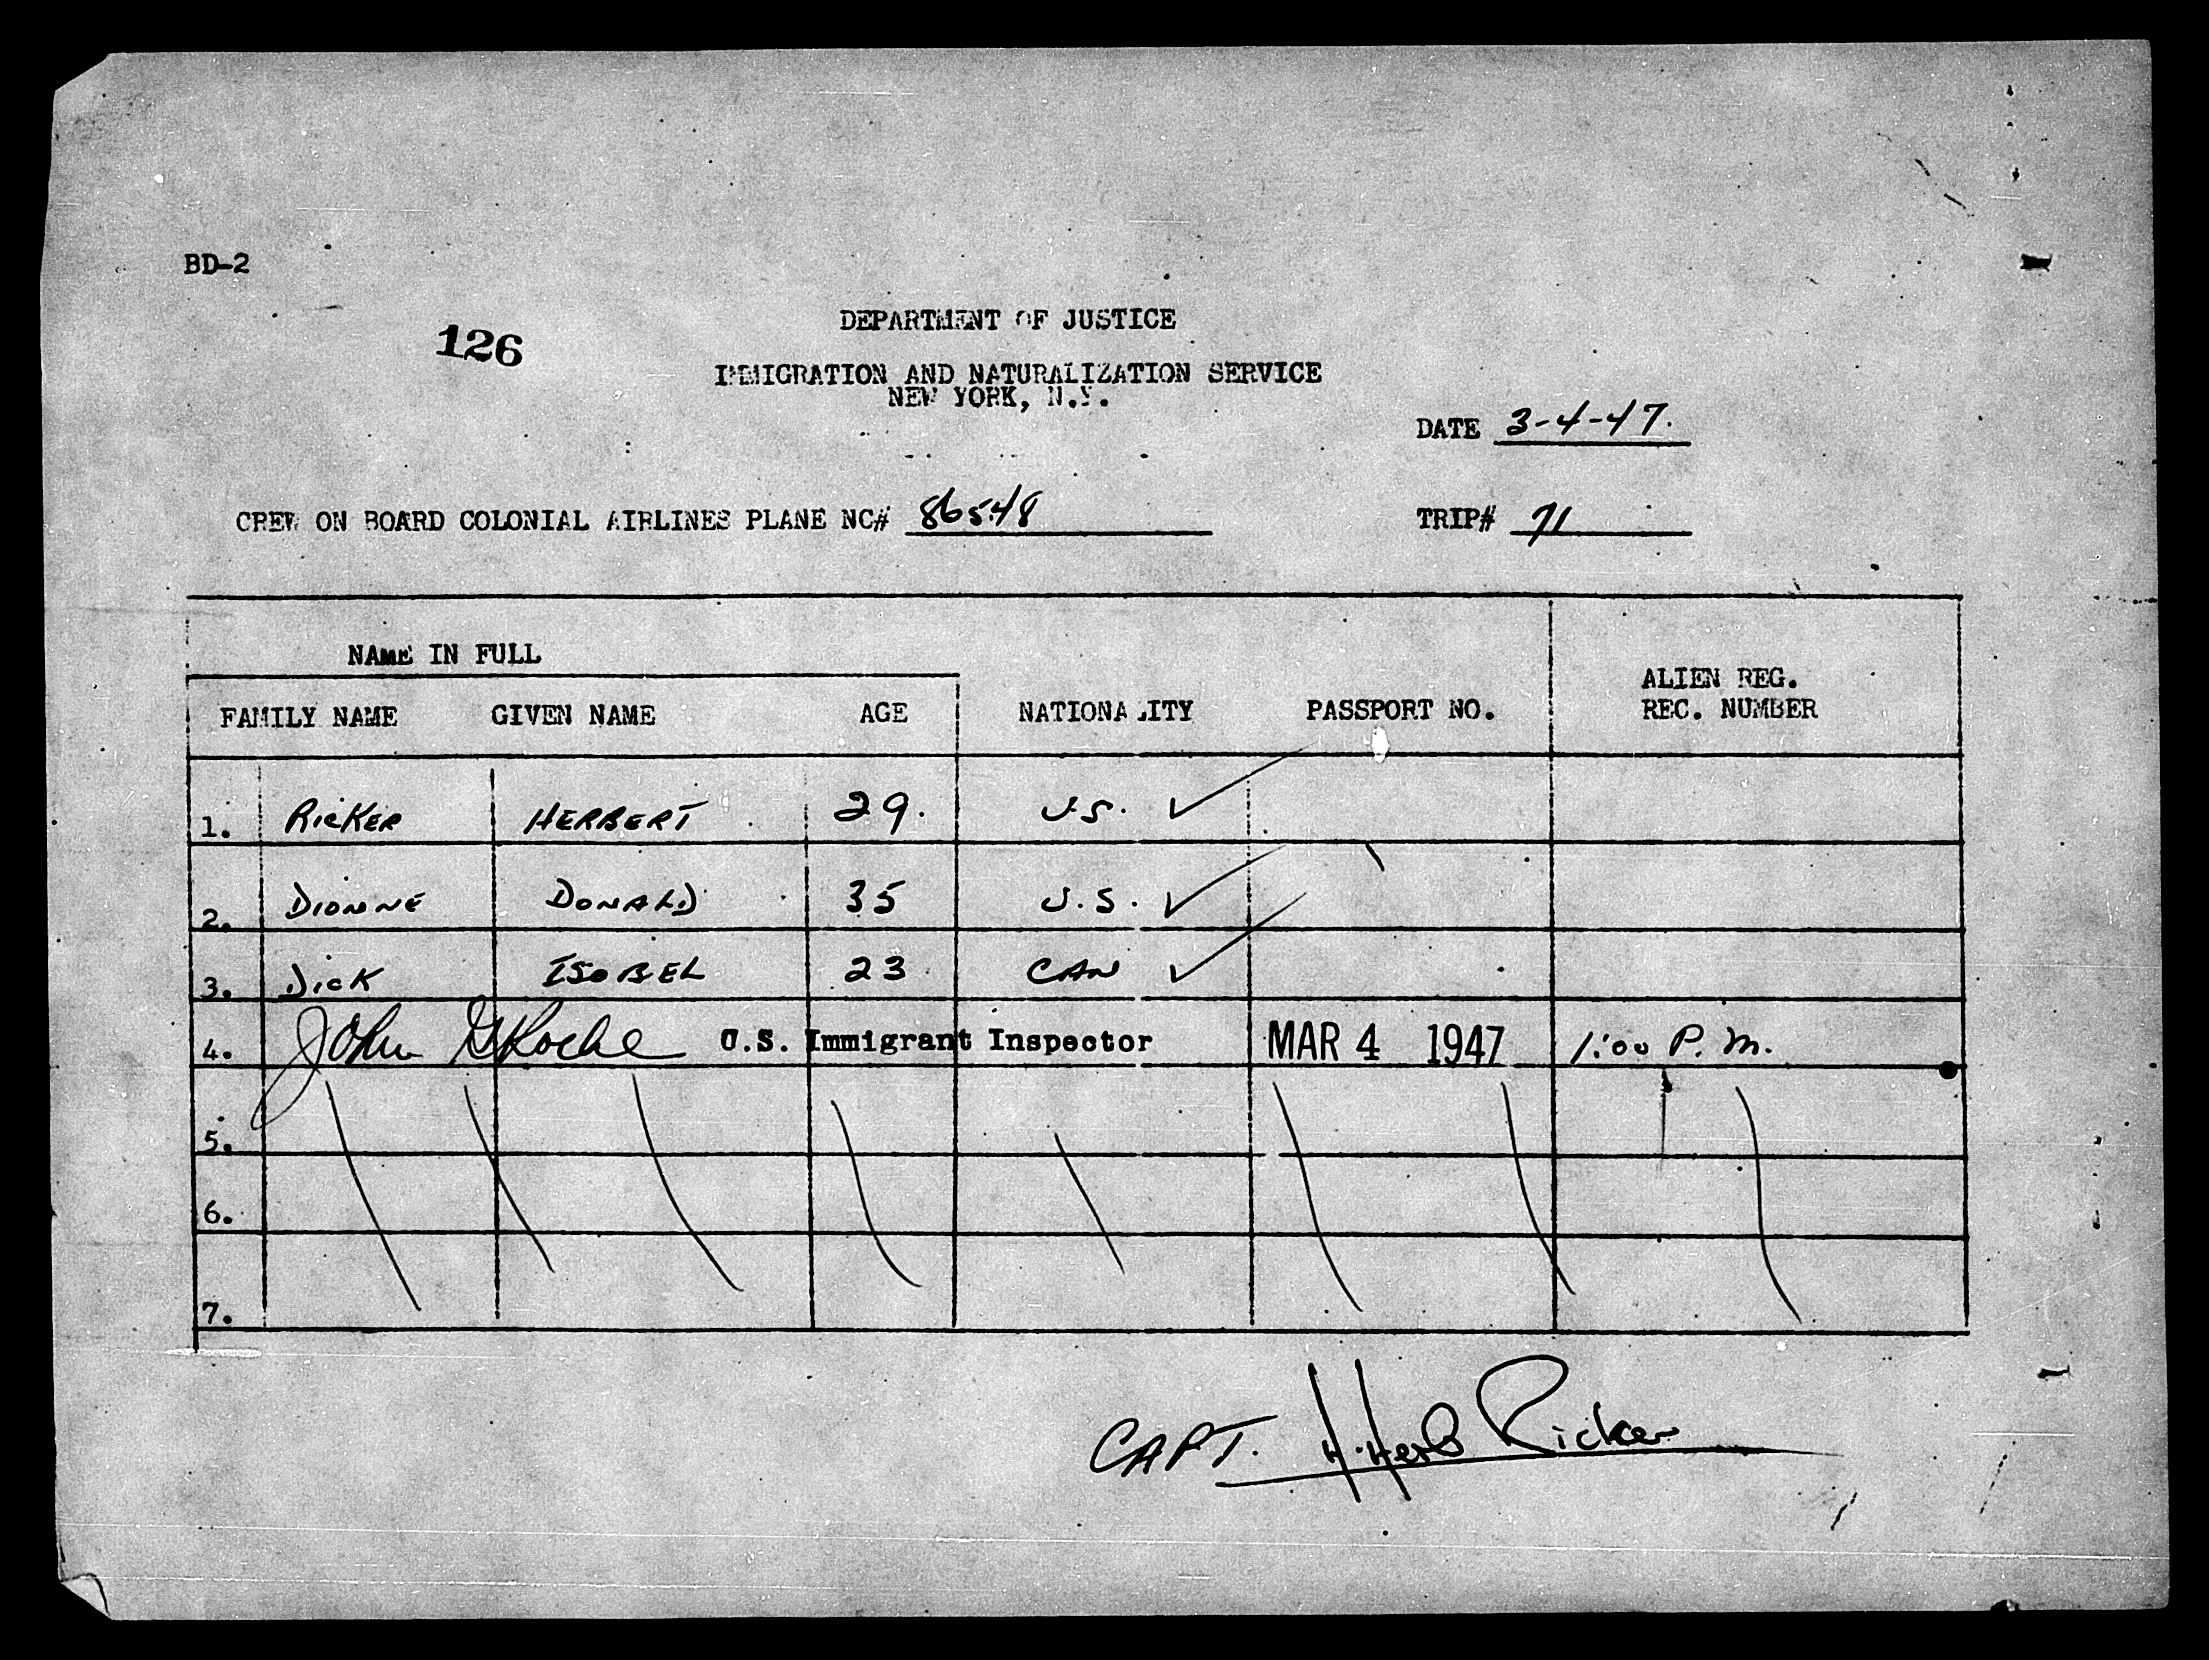 BD-2
126
DEPARTMENT OF JUSTICE
IMMIGRATION AND NATURALIZATION SERVICE
NEW YORK, N.Y.
DATE 3-4-47.
CREW ON BOARD COLONIAL AIRLINES PLANE NC# 86548
TRIP# 71
NAME IN FULL
FAMILY NAME GIVEN NAME AGE NATIONALITY PASSPORT NO. ALIEN REG. REC. NUMBER
1. RICKER HERBERT 29. U.S.
2. DIONNE DONALD 35 U.S.
3. DICK ISOBEL 23 CAN
4. John Roche U.S. Immigrant Inspector MAR 4 1947 1:00 P.M.
5.
6.
7.
CAPT. H. Herb Ricker